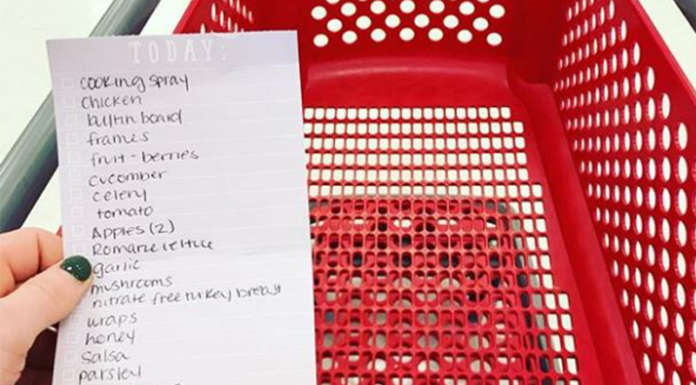 TODAY:
cooking spray
chicken
bulletin board
frames
fruit - berries
cucomber
celery
tomato
Apples (2)
Romaine lettuce
garlic
mushrooms
nitrate free turkey breast
wraps
honey
Salsa
parsley